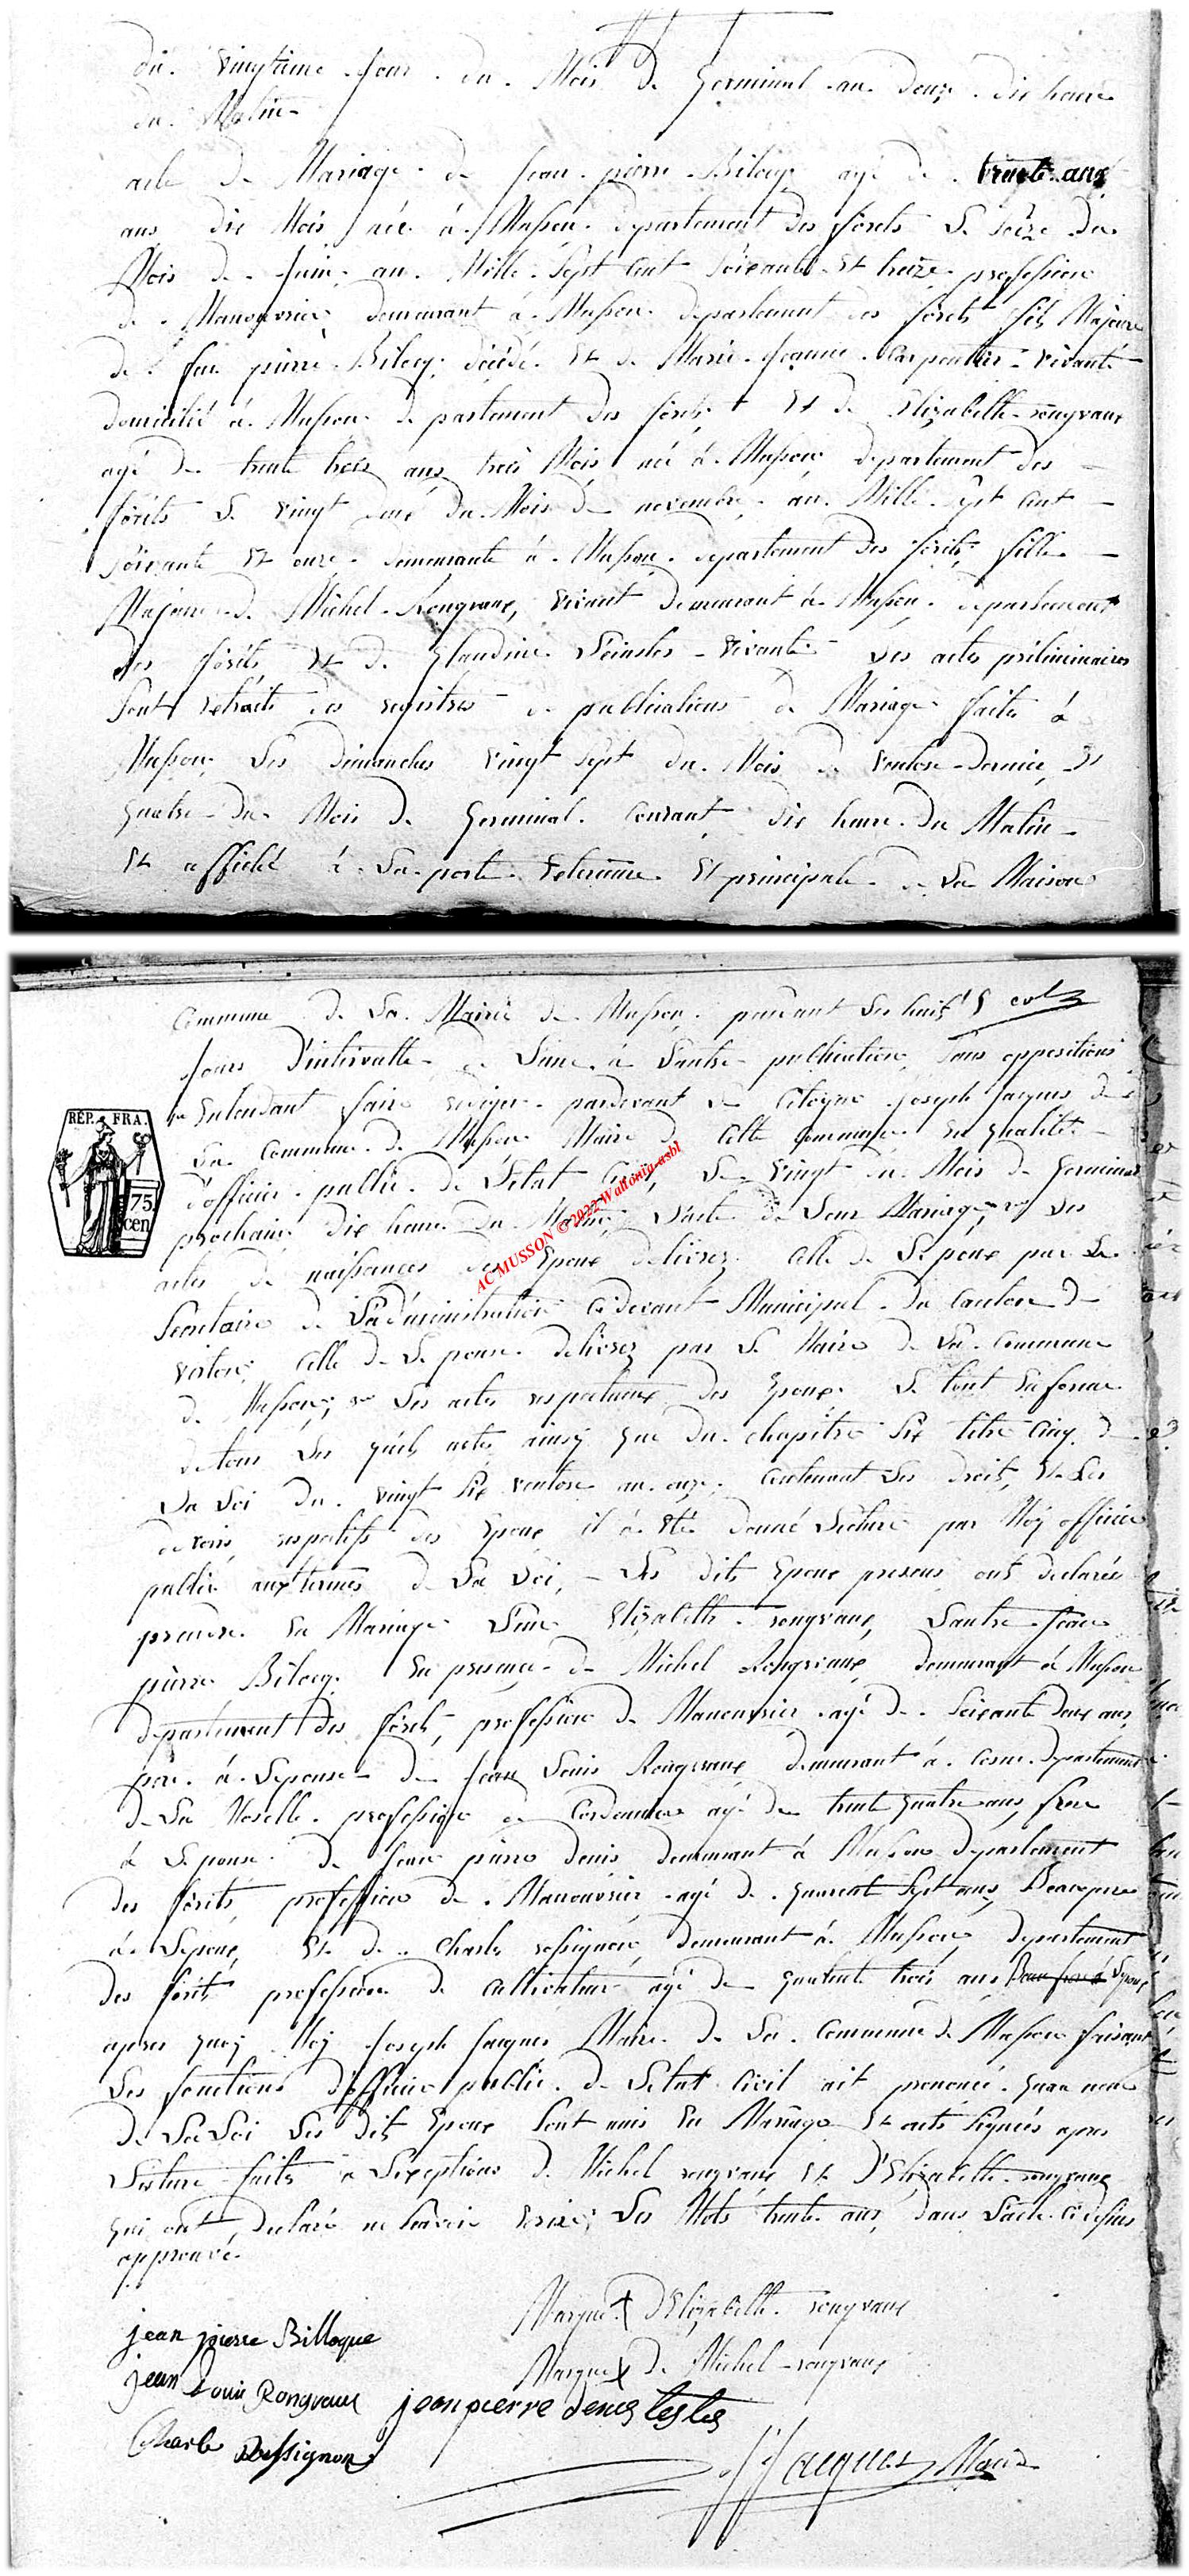 du vingtieme jour du Mois de Germinal an douze dix heure
du Matin
acte de Mariage de jean pierre Bilocq agé de trente ans
ans dix Mois née à Musson departement des forets Le seize du
Mois de juin an Mille Sept Cent soixante Et treize profession
de Manouvrier demeurant à Musson departement des forets fils Majeure
de feu pierre Bilocq décédé Et de Marie jeanne Carpentier vivante
domicilié à Musson departement des forets Et de Elizabeth rongvaux
agé de trente trois ans trois Mois née à Musson departement des
forêts Le vingt du Mois de novembre an Mille Sept Cent
soixante Et onze demeurante à Musson departement des forets fille
Majeure de Michel Rongvaux, vivant demeurant à Musson departement
des forêts Et de Glaudine vivante Les actes préliminaires
Sont extraits des registres de publications de Mariage faite à
Musson Les dimanches vingt sept du Mois de ventose dernier Et
quatre du Mois de Germinal Courant dix heure du Matin
Et affiché à La porte Exterieure Et principale de La Maison
Commune de La Mairie de Musson pendant Les huit
jours D'intervalle de L'une à L'autre publication Sans oppositions
Entendant faire rediger pardevant Le Citoyen joseph jacques de
La Commune de Musson Maire de Cette Commune En qualité
d'officier public de L'Etat Civil, Le vingt du Mois de Germinal
prochain dix heure du Matin L'acte de Leur Mariage, Les
actes de naissances des Epoux delivrez Celle de L'Epoux par Le
Secretaire de L'administration Cidevant Municipal du Canton de
virton, Celle de L'epouse delivrez par Le Maire de La Commune
de Musson; Les actes respectueux des Epoux Le tout En forme
de tous Les quels actes ainsy que du chapitre Six titre Cinq de
La Loi du vingt Six ventose an onze Contenant Les droits, Et Les
devoirs respectifs des Epoux il à été donné Lecture par Moy officier
public aux termes de La Loi, Les dits Epoux presens ont declarée
prendre En Mariage L'une Elizabeth rongvaux, L'autre jean
pierre Bilocq En presence de Michel Rongvaux, demeurant à Musson
departement des forêts, profession de Manouvrier agé de Soixante deux ans
pere à L'epouse de jean Louis Rongvaux demeurant à Cosne departement
de La Moselle profession de Cordonnier agé de trente quatre ans, frere
à L'epouse de jean pierre denis demeurant à Musson departement
des forêts profession de Manouvrier agé de quarent Sept ans Beaupere
à L'epoux, Et de Charle rossignon, demeurant à Musson departement
des forêts profession de Cultivateur agé de quarente trois ans Beau frere à L'epoux
apres quoy Moy joseph jacques Maire de La Commune de Musson faisant
Les fonctions d'officier public de L'etat Civil ait prononcé quau nom
de La Loi Les dits Epoux Sont unis En Mariage Et ont Signés apres
Lecture faite à L'exceptions de Michel rongvaux Et d'Elizabeth rongvaux
qui ont declaré ne Savoir Ecrire; Les Mots trente ans dans L'acte Cidessus
approuvé.
Marque d'Elizabeth rongvaux
jean pierre Billoque
Marque de Michel rongvaux
jean Louis Rongvaux jean pierre denis testes
Charle Rossignon
J Jacques Maire
REP. FRA.
75
cen
AC MUSSON ©2022 Wallonia asbl